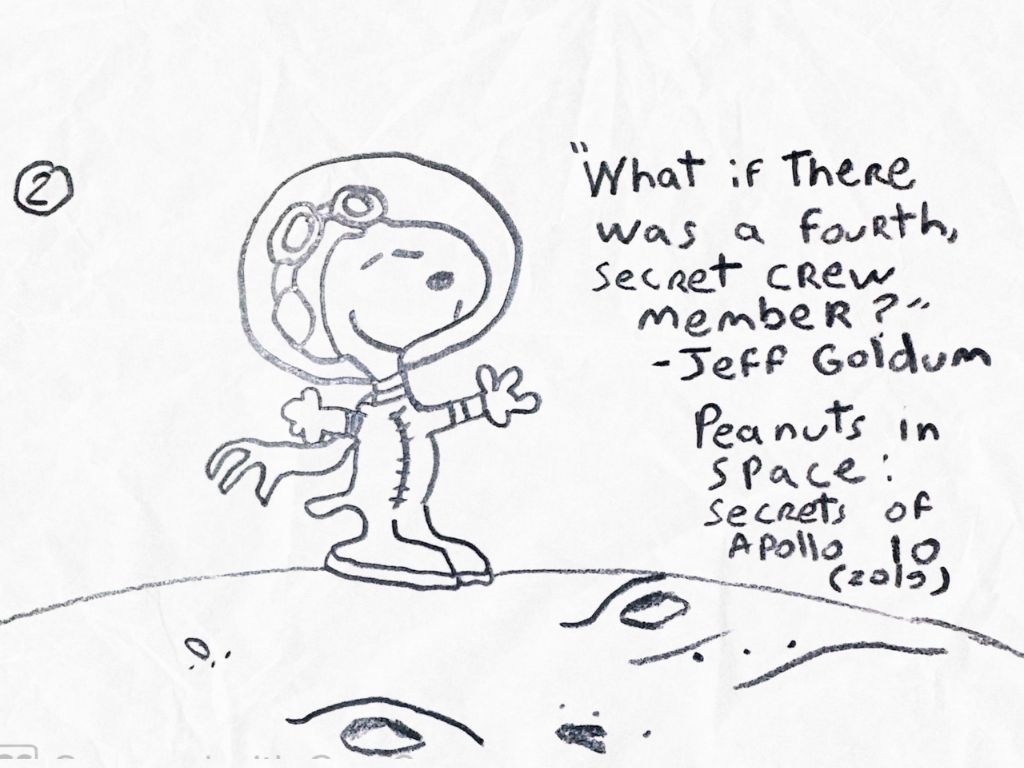 2
"What if There
was a fourth,
secret crew
member?"
-Jeff Goldum
Peanuts in
space:
secrets of
Apollo 10
(2019)